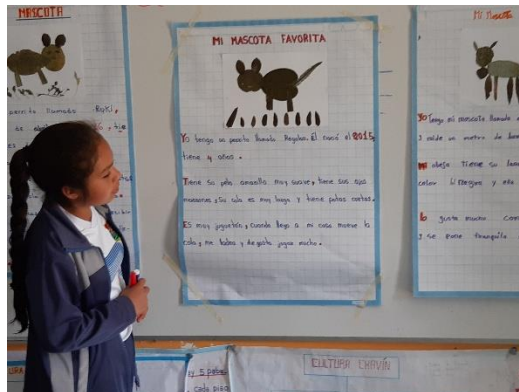 MASCOTA
perrito llamado Roki,
MI MASCOTA FAVORITA
Yo tengo un perrito llamado Regalon. Él nació el 2015,
tiene 4 años.
Tiene su pelo amarillo muy suave, tiene sus ojos
marrones, su cola es muy larga y tiene patas cortas.
Es muy juguetón, cuando llego a mi casa mueve la
cola, me ladra y le gusta jugar mucho.
Mi Mascota
Yo tengo mi mascota llamada
y mide un metro de
oveja tiene su lana
color y ella
le gusta mucho
y se pone tranquila
CULTURA CHAVÍN
y 5 patas.
cada piso